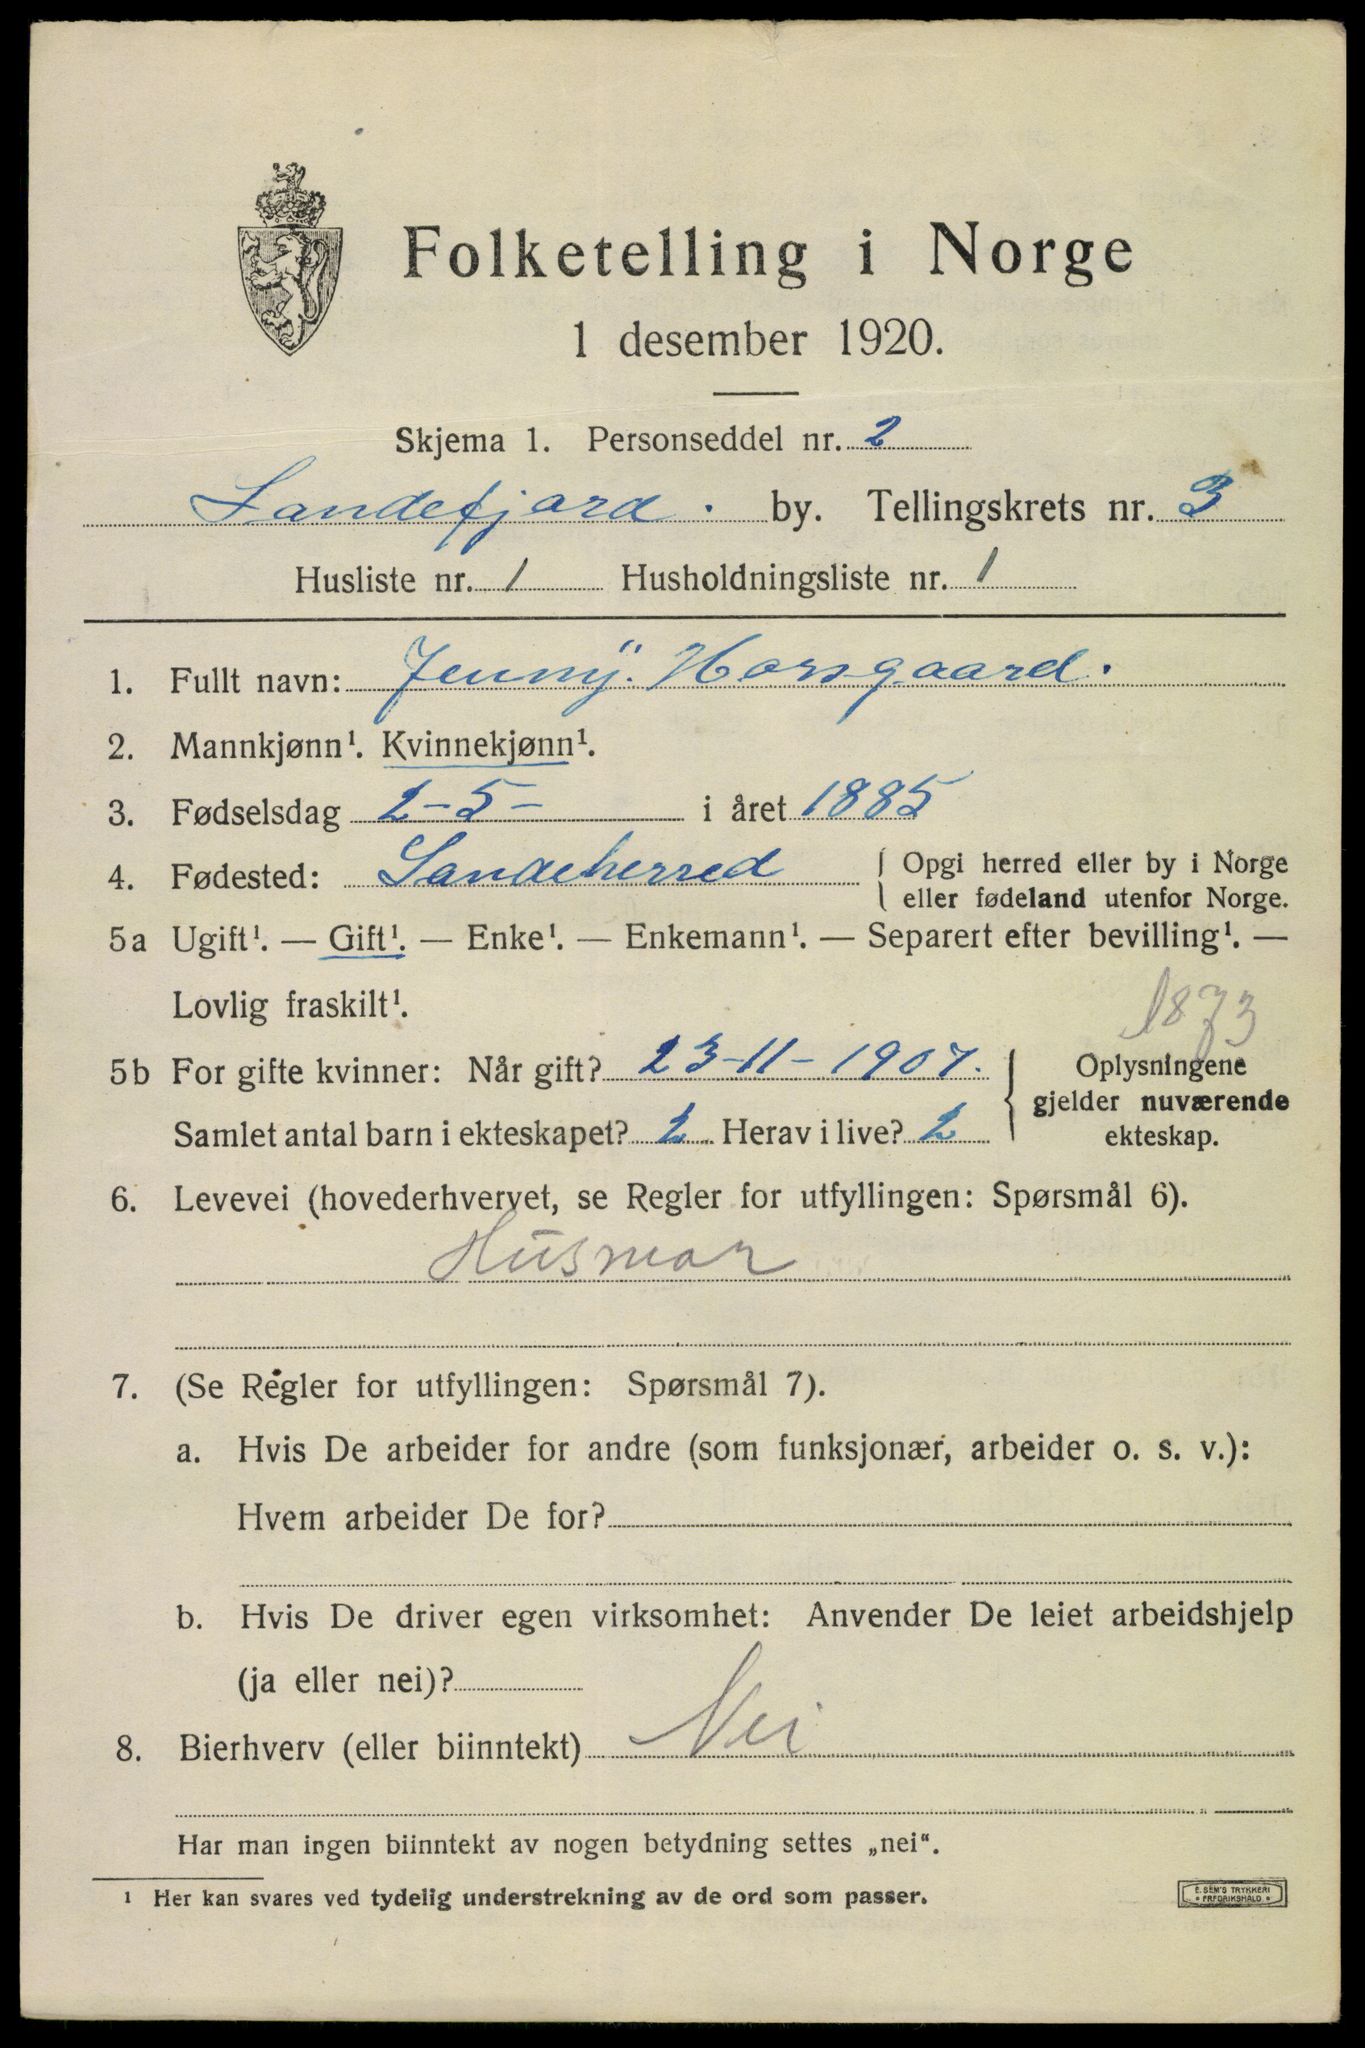 Folketelling i Norge
1 desember 1920.
Skjema 1. Personseddel nr. 2
Sandefjord. by. Tellingskrets nr. 3
Husliste nr. 1 Husholdningsliste nr. 1
1. Fullt navn: Jenny. Horsgaard.
2. Mannkjønn¹. Kvinnekjønn¹.
3. Fødselsdag 2-5- i året 1885
4. Fødested: Sandeherred { Opgi herred eller by i Norge
eller fødeland utenfor Norge.
5a Ugift¹. — Gift¹. — Enke¹. — Enkemann¹. — Separert efter bevilling¹. —
Lovlig fraskilt¹.
1873
5b For gifte kvinner: Når gift? 23-11-1907. } Oplysningene
gjelder nuværende
Samlet antal barn i ekteskapet? 2 Herav i live? 2 ekteskap.
6. Levevei (hovederhvervet, se Regler for utfyllingen: Spørsmål 6).
Husmor
7. (Se Regler for utfyllingen: Spørsmål 7).
a. Hvis De arbeider for andre (som funksjonær, arbeider o. s. v.):
Hvem arbeider De for?
b. Hvis De driver egen virksomhet: Anvender De leiet arbeidshjelp
(ja eller nei)?
8. Bierhverv (eller biinntekt) Nei
Har man ingen biinntekt av nogen betydning settes „nei“.
¹ Her kan svares ved tydelig understrekning av de ord som passer.
E. SEM'S TRYKKERI
FREDRIKSHALD